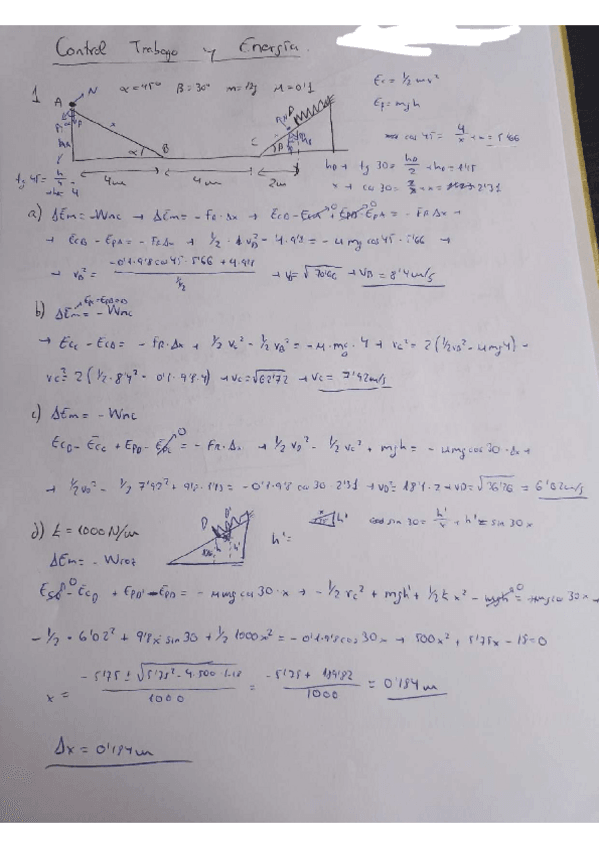 Control Trabajo y Energía.
1 α=45º β=30º m=1kg μ=0'1
Ec=½mv²
Ep=mgh
A N
P
α B C β D
4m 4m 2m
cos 45 = 4/x → x = 5'66
tg 45 = h/4 → h = 4
hD → tg 30 = hD/2 → hD = 1'15
x → cos 30 = 2/x → x = 2'31
a) ΔEm = -WNC → ΔEm = -FR·Δx → EcB - EcA + EpB - EpA = -FR Δx →
→ EcB - EpA = -FR Δx → ½·1 vB² - 4·9'8 = -μmg cos 45·5'66 →
→ vB² = (-0'1·9'8 cos 45·5'66 + 4·9'8) / ½ → vB = √70'56 → vB = 8'4 m/s
b) ΔEm = -WNC
→ EcC - EcB = -FR·Δx → ½ vC² - ½ vB² = -μ·mg·4 → vC² = 2(½vB² - μmg4) -
vC² = 2(½·8'4² - 0'1·9'8·4) → vC = √62'72 → vC = 7'92 m/s
c) ΔEm = -WNC
EcD - EcC + EpD - EpC = -FR·Δx → ½ vD² - ½ vC² + mgh = -μmg cos 30·Δx →
→ ½vD² - ½ 7'92² + 9'8·1'15 = -0'1·9'8 cos 30·2'31 → vD² = 18'1·2 → vD = √36'26 = 6'02 m/s
d) k = 1000 N/m
D D'
h' =
sin 30 = h'/x → h' = sin 30 x
ΔEm = -Wroz
- EcD + EpD' - EpD = -μmg cos 30·x → -½ vD² + mgh' + ½ k x² - mgh = -μmg cos 30 x →
-½·6'02² + 9'8 x sin 30 + ½ 1000x² = -0'1·9'8 cos 30x → 500x² + 5'75x - 18 = 0
x = (-5'75 ± √(5'75² - 4·500·(-18))) / 1000 = (-5'75 + 189'82) / 1000 = 0'184 m
Δx = 0'184 m